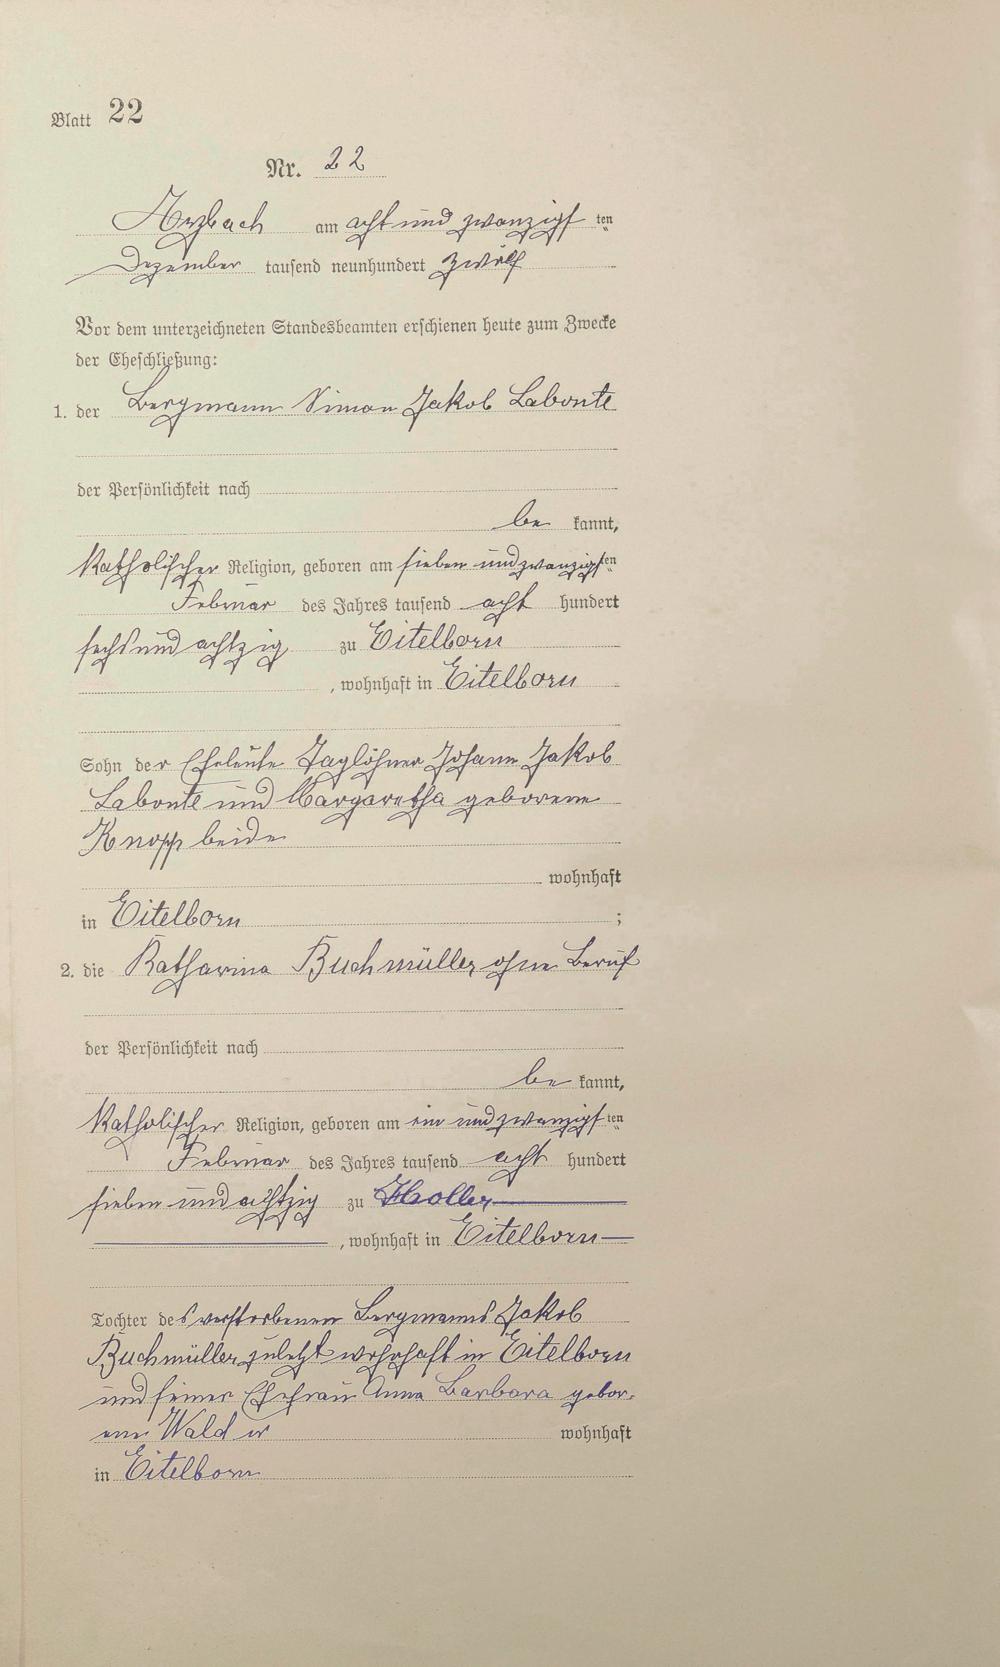 Blatt 22
Nr. 22
Arzbach am acht und zwanzigsten
Dezember tausend neunhundert zwölf
Vor dem unterzeichneten Standesbeamten erschienen heute zum Zwecke
der Eheschließung:
1. der Bergmann Simon Jakob Labonte
der Persönlichkeit nach
be kannt,
katholischer Religion, geboren am sieben und zwanzigsten
Februar des Jahres tausend acht hundert
sechs und achtzig zu Eitelborn
, wohnhaft in Eitelborn
Sohn der Eheleute Taglöhner Johann Jakob
Labonte und Margaretha geborene
Knopp beide
wohnhaft
in Eitelborn ;
2. die Katharina Buchmüller ohne Beruf
der Persönlichkeit nach
be kannt,
katholischer Religion, geboren am ein und zwanzigsten
Februar des Jahres tausend acht hundert
sieben und achtzig zu Holler
, wohnhaft in Eitelborn
Tochter des verstorbenen Bergmanns Jakob
Buchmüller zuletzt wohnhaft in Eitelborn
und seiner Ehefrau Anna Barbara gebor-
ene wohnhaft
in Eitelborn